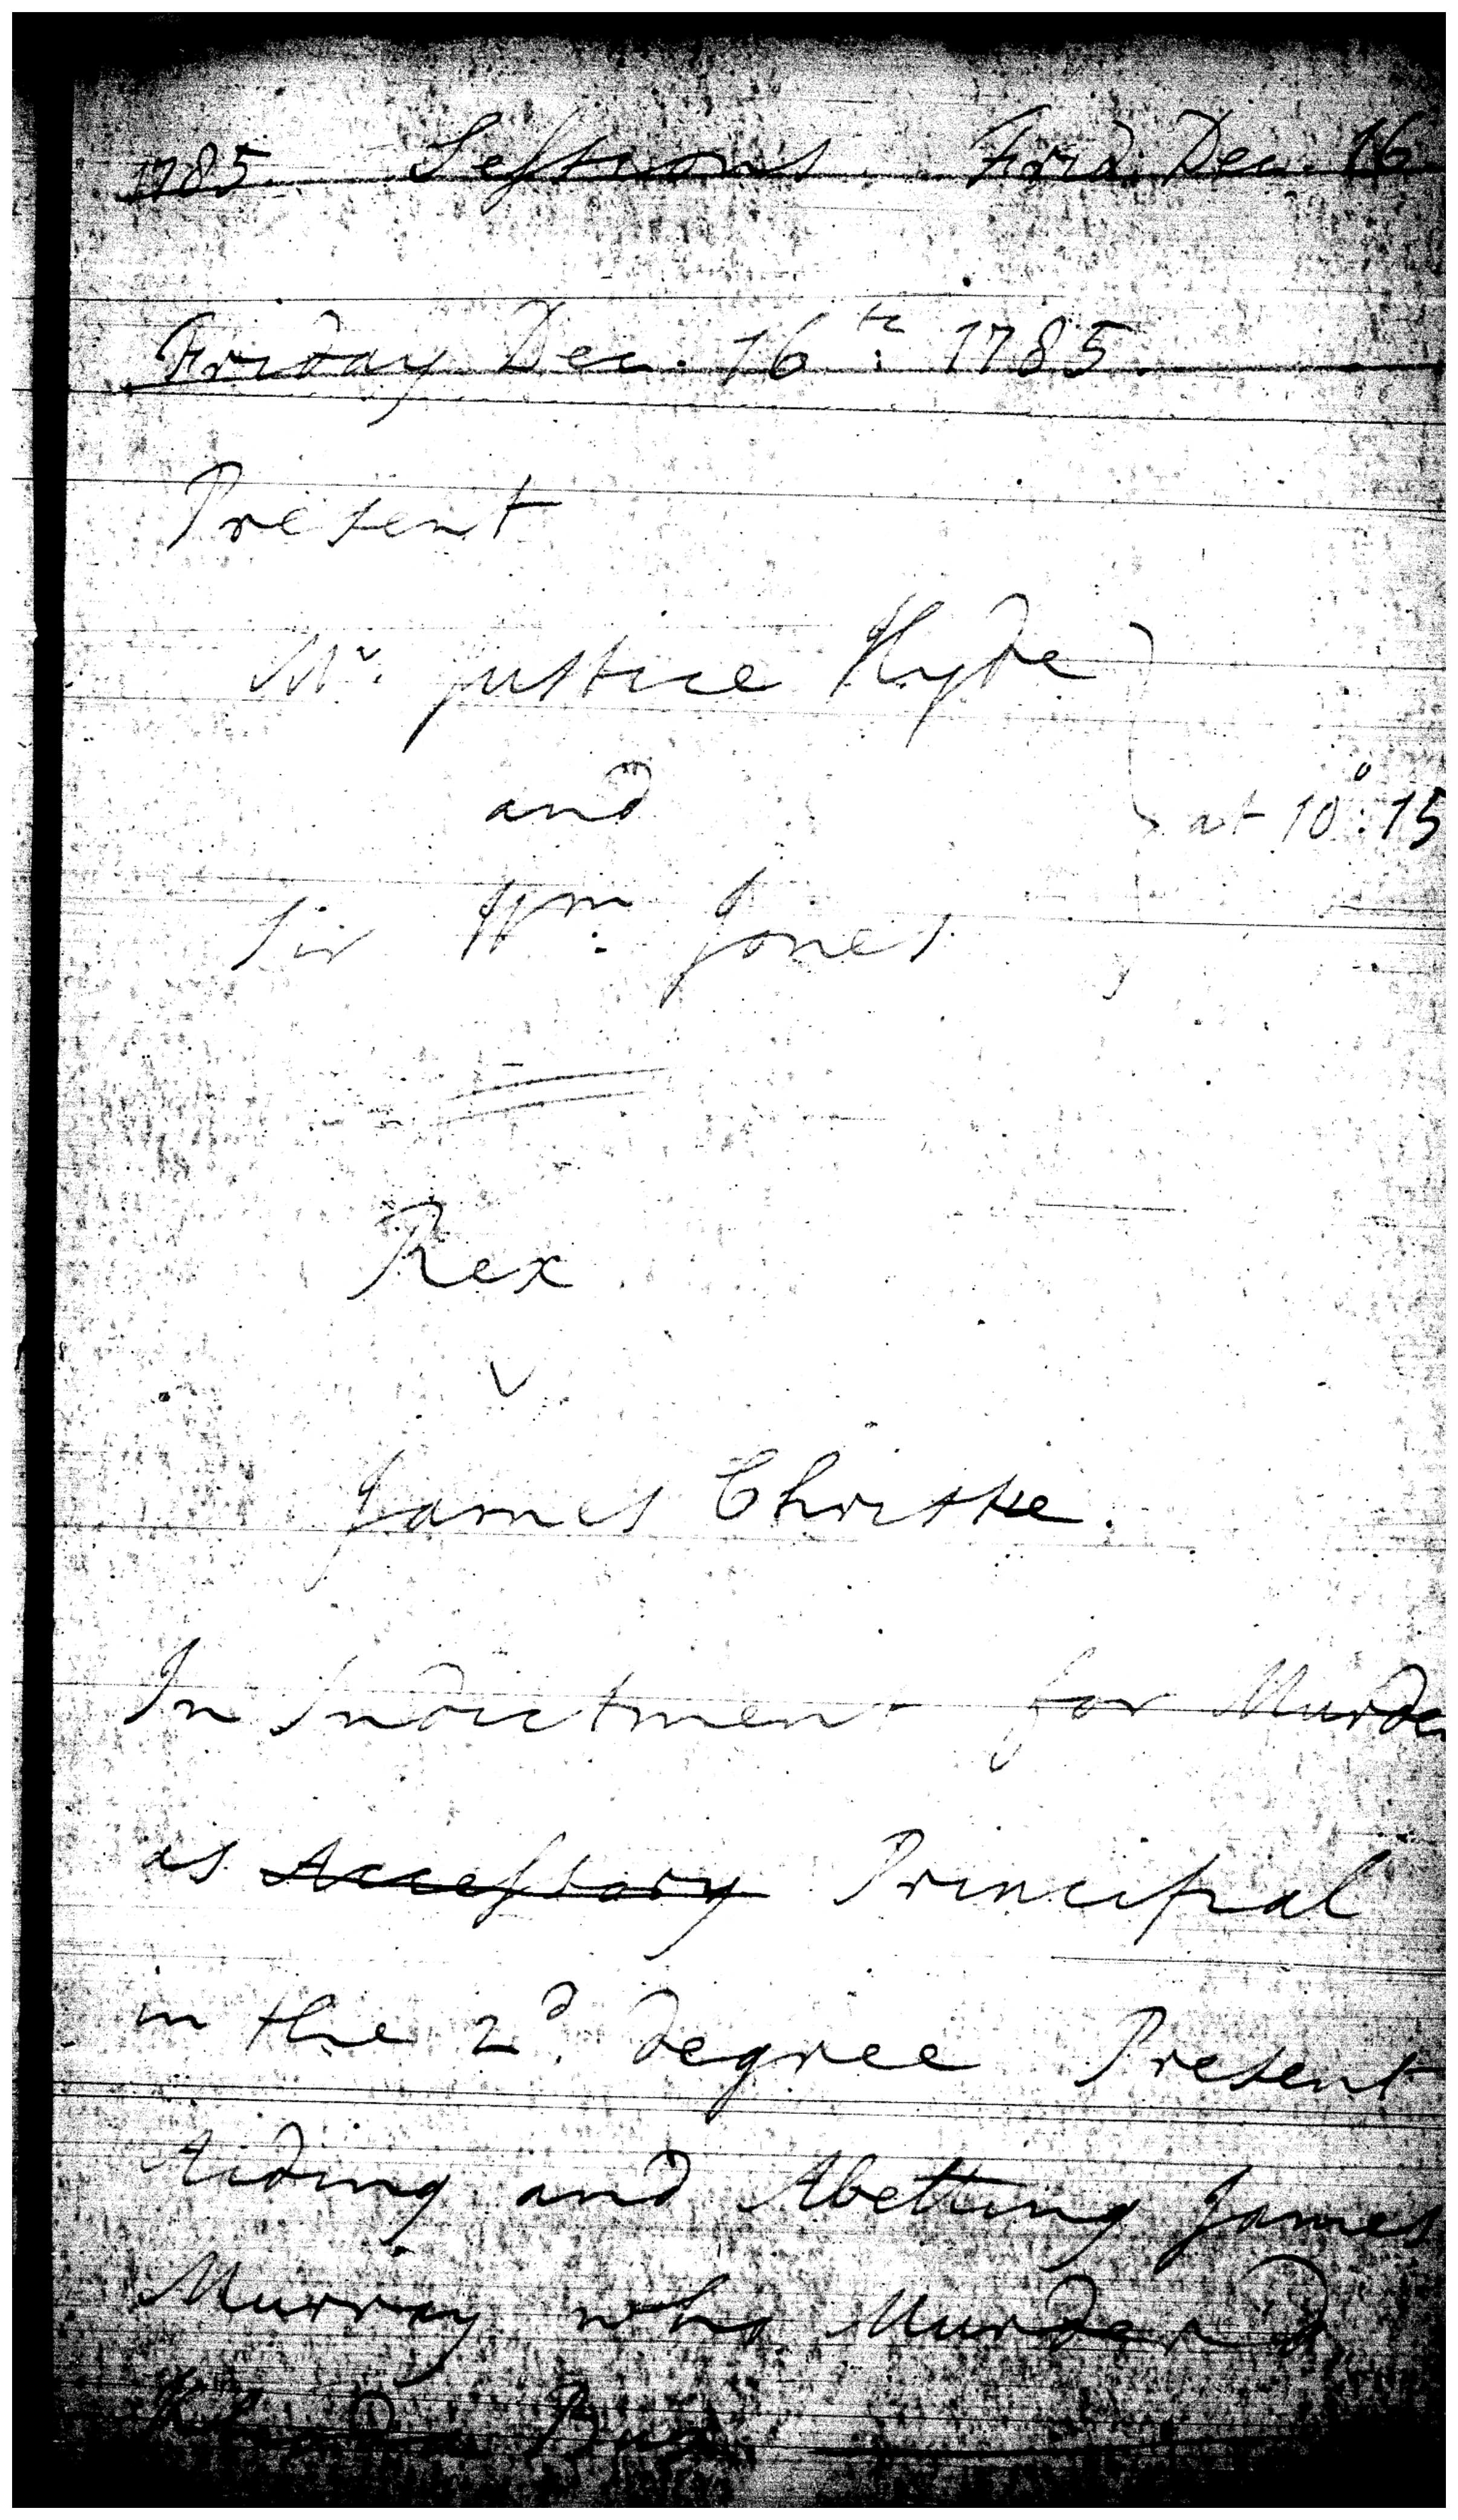 1785. Sessions. Frid. Dec. 16
Friday Dec. 16th: 1785.
Present
Mr. Justice Hyde
and
at 10°: 15
Sir Wm: Jones
Rex
v
James Christie.
In Indictment for Murder
as Accessory Principal
in the 2d. degree Present
Aiding and Abetting James
Murray who Murdered